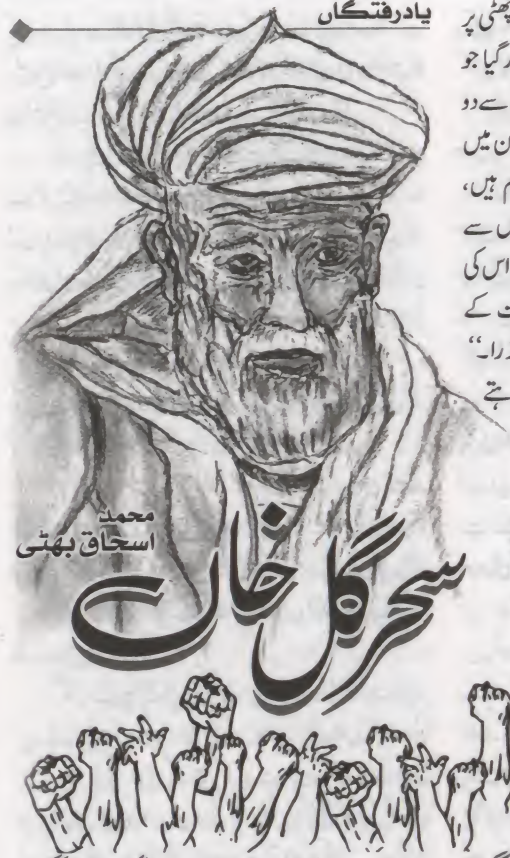 یادرفتگاں
پھٹی پر
ر گیا جو
سے دو
ن میں
م ہیں،
ں سے
اس کی
ت کے
ذرا۔“
ہتے
محمد
اسحاق بھٹی
سحر گل خاں